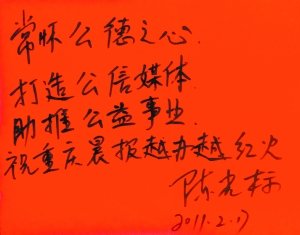 常怀公德之心.
打造公信媒体
助推公益事业.
祝重庆晨报越办越红火
陈光标
2011.2.17